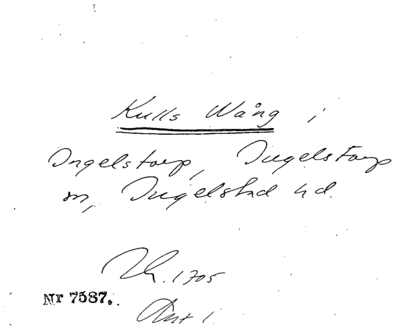 Kulls Wång i
Ingelstorp, Ingelstorp
sn, Ingelstad hd.
1705
Nr 7587.
Akt 1